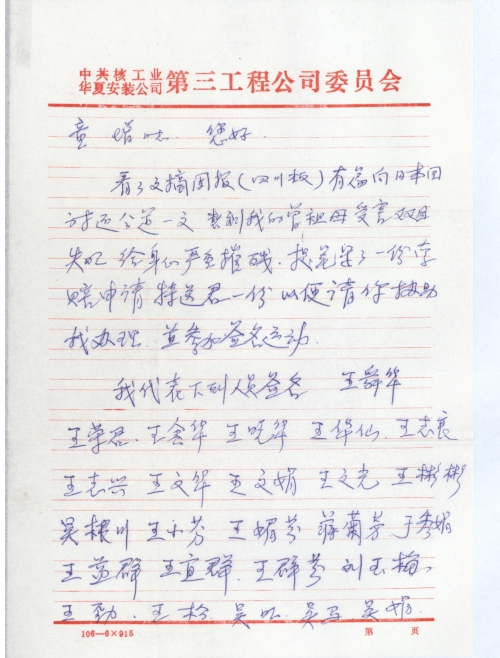 中共核工业
华夏安装公司 第三工程公司委员会
童增 您好.
看了文摘周报(四川板)有篇向日本国
讨还公道一文 我的曾祖母受害双目
失 给身心严重摧残. 了一份
赔申请 特送君一份 以便请你协助
我办理. 并参加签名运动.
我代表下列人员签名 王舜华
王荣君. 王含华 王晓华 王华仙. 王志良
王志兴 王文华 王文娟 王文光 王彬彬
吴根川 王小芳 王娟芬 薛菊芳 于秀娟
王益群 王宜群. 王群芬 刘玉梅.
王勁. 王松. 吴 吴 吴娟.
106—6×915 第 页